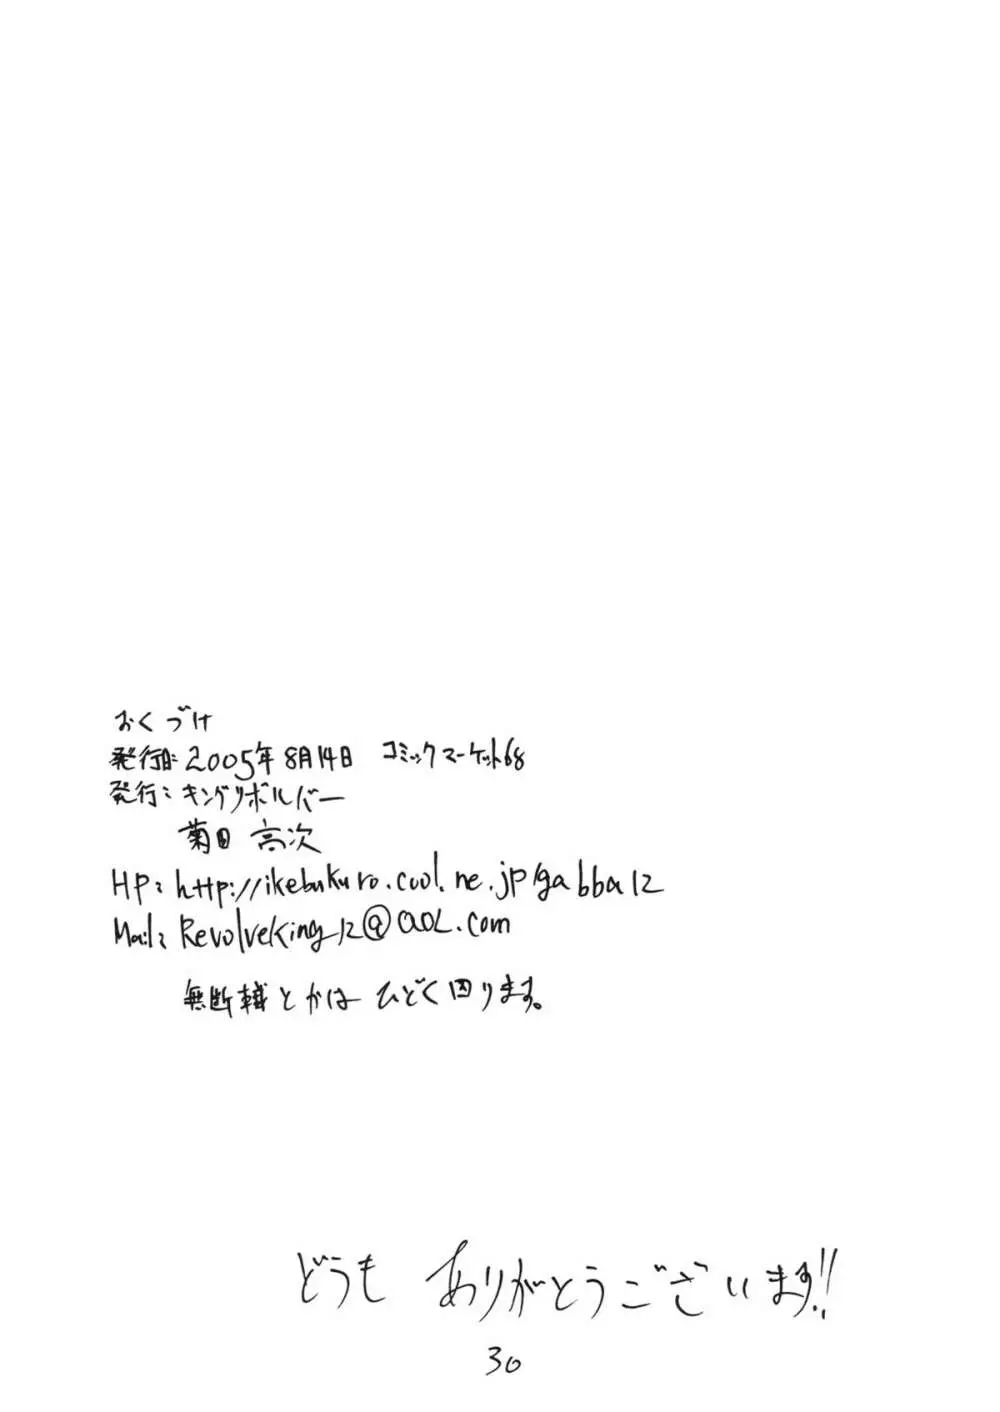 おくづけ
発行日:2005年8月14日 コミックマーケット68
発行:キングリボルバー
菊田 高次
HP:http://ikebukuro.cool.ne.jp/gabba12
Mail:Revolveking12@aol.com
無断転載とかはひどく困ります。
どうも ありがとうございます!!
30